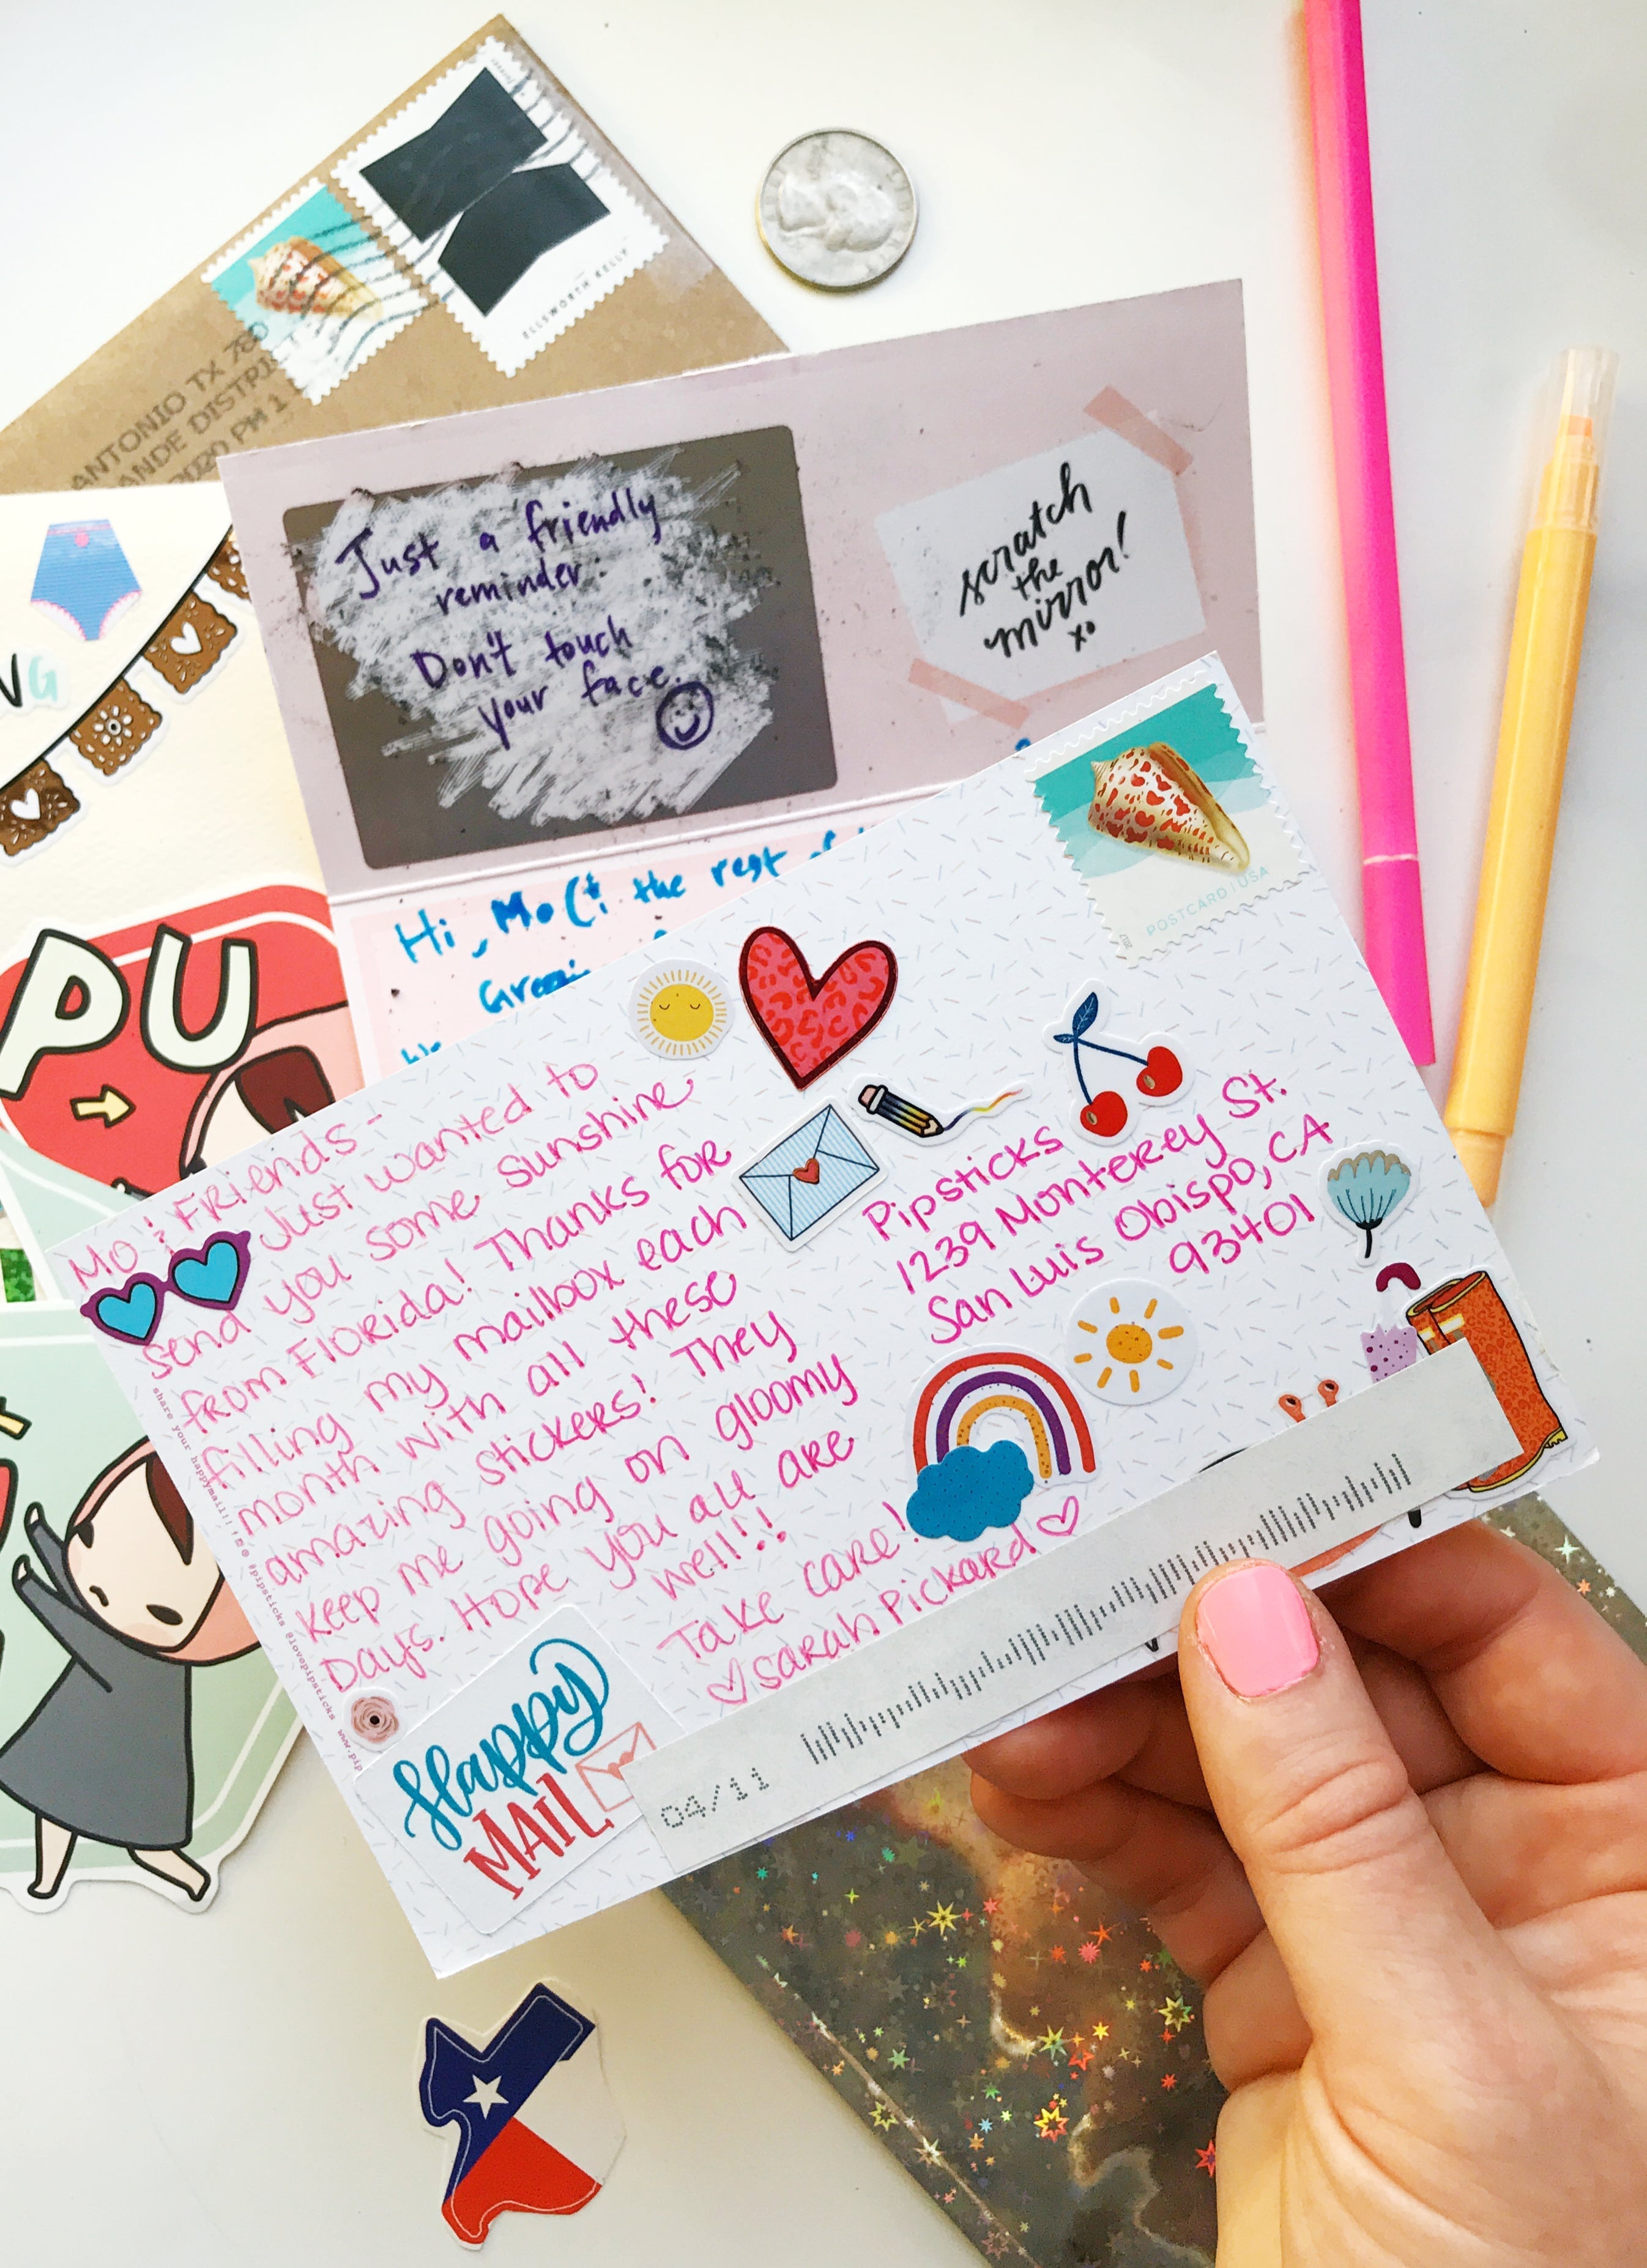 ELLSWORTH KELLY
ANTONIO TX 780
ANDE DISTRICT
2020 PM 1
Just a friendly
reminder.
Don't touch
your face.
scratch
the
mirror!
xo
POSTCARD | USA
2017
Hi, Mo & the rest of
PU
Mo & Friends-
Just wanted to
send you some sunshine
from Florida! Thanks for
filling my mailbox each
month with all these
amazing stickers! They
keep me going on gloomy
Days. Hope you all are
well!!
Take care!
Sarah Pickard
Pipsticks
1239 Monterey St.
San Luis Obispo, CA
93401
share your happymail!
#pipsticks @lovepipsticks
Happy
MAIL
04/11